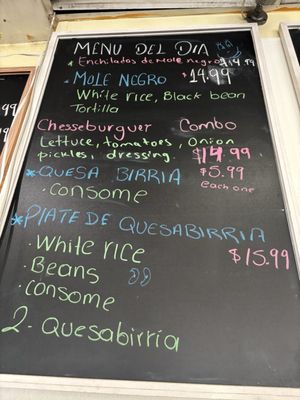 MENU DEL DIA
* Enchilados de Mole negro $14.99
* MOLE NEGRO $14.99
White rice, Black bean
Tortilla
Chesseburguer Combo
Lettuce, tomatoes, onion
pickles, dressing $14.99
* QUESA BIRRIA $5.99
· Consome each one
* PLATE DE QUESABIRRIA
· White rice $15.99
· Beans
· Consome
2. Quesabirria